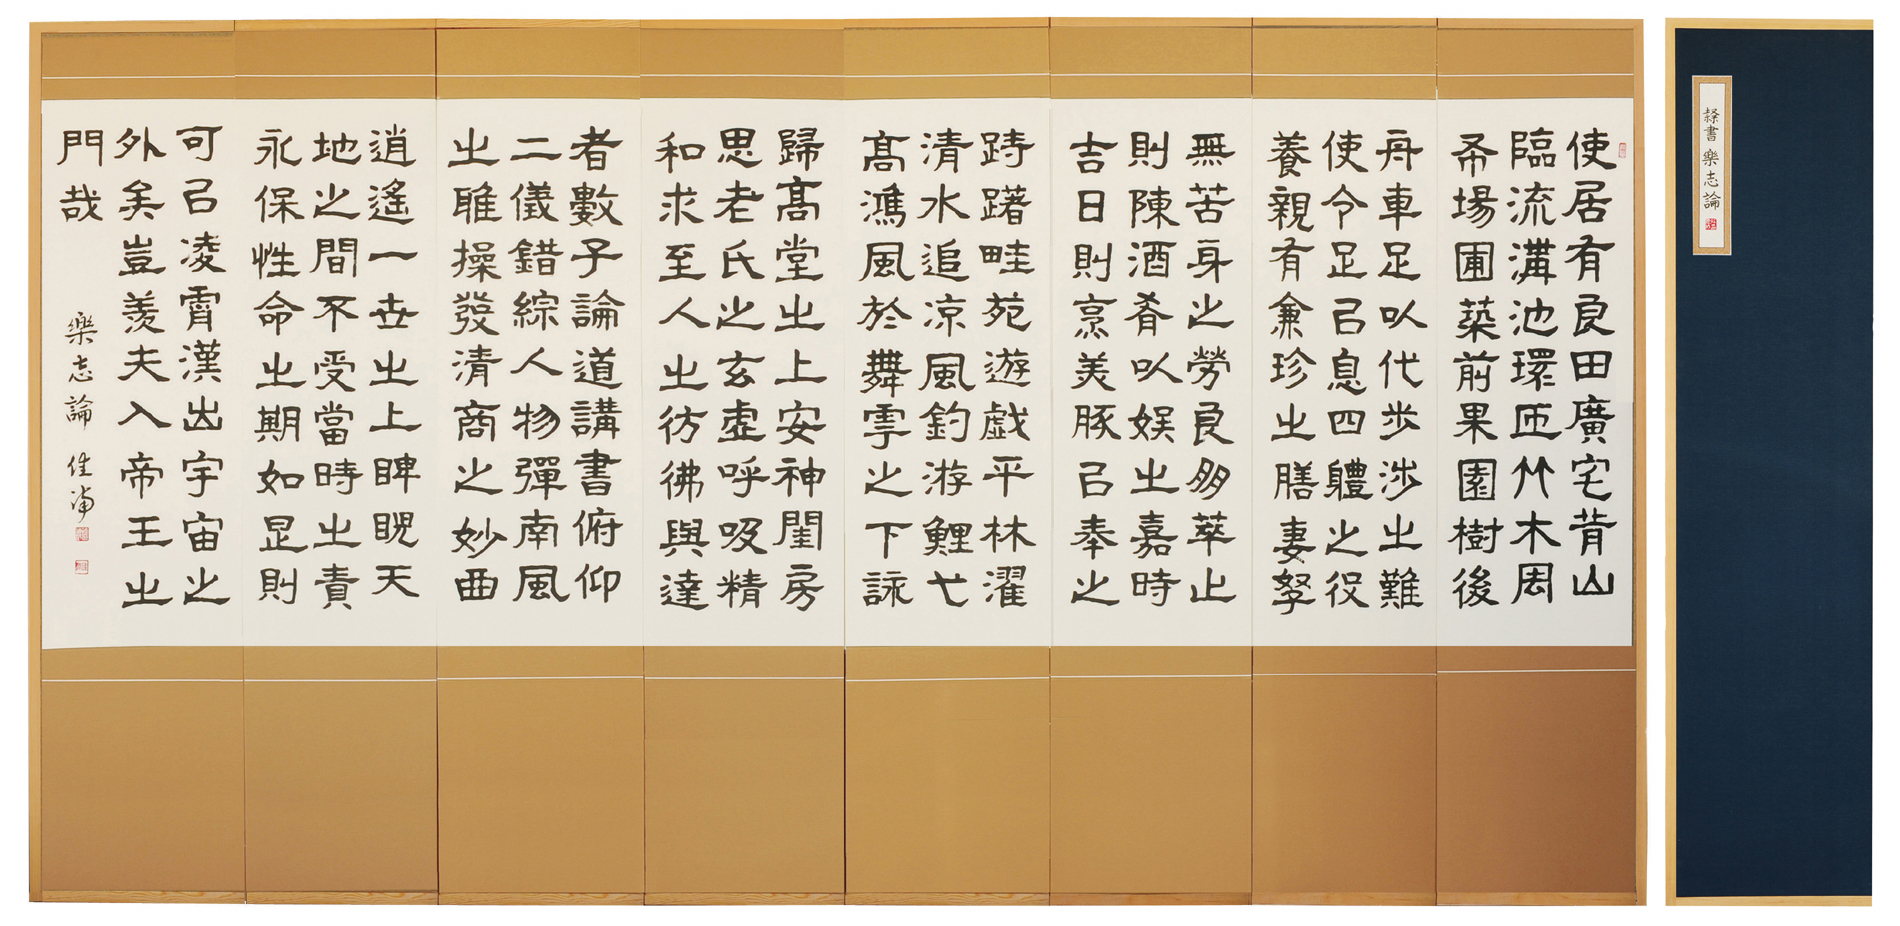 使居有良田廣宅背山
臨流溝池環匝竹木周
布場圃築前果園樹後
舟車足以代步涉之難
使令足㠯息四體之役
養親有兼珍之膳妻孥
無苦身之勞良朋萃止
則陳酒肴以娛之嘉時
吉日則烹羔豚㠯奉之
跱躇畦苑遊戲平林濯
清水追凉風釣游鯉弋
高鴻風於舞雩之下詠
歸高堂之上安神閨房
思老氏之玄虛呼吸精
和求至人之彷彿與達
者數子論道講書俯仰
二儀錯綜人物彈南風
之雅操發清商之妙曲
逍遙一世之上睥睨天
地之間不受當時之責
永保性命之期如是則
可㠯凌霄漢出宇宙之
外矣豈羨夫入帝王之
門哉
樂志論 佳
隸書 樂志論